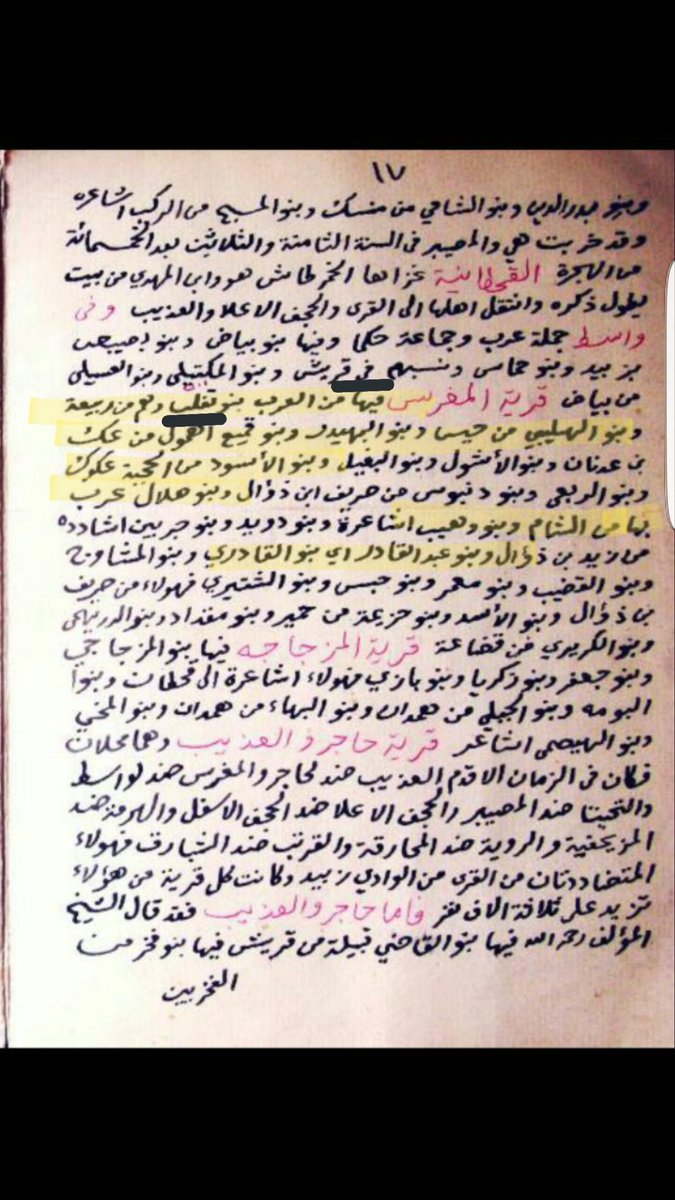 ١٧
وبنو بدر الدين وبنو الشامي من منسك وبنو المسيح من الركب اشاعره
وقد خربت هي والمصيبر في السنة الثامنة والثلاثين بعد الخمسمائة
من الهجرة القحطانية غزاها الخرطاش هو وابن المهدي من بيت
يطول ذكره وانتقل اهلها الى القرى والجحف الاعلا والعذيب وفي
واسط جملة عرب وجماعة حكما وفيها بنو بياض وبنو
بزبيد وبنو حماس ونسبهم في قريش وبنو المكتبلي وبنو العسيلي
من بياض قرية المغرس فيها من العرب بنو تغلب وهم من ربيعة
وبنو الهليبي من حيس وبنو البهيدر وبنو قميع اهمول من عك
بن عدنان وبنو الأشول وبنو البغيل وبنو الأسود من الحجبة عكوك
وبنو الربعي وبنو دنبوس من صريف ابن ذؤال وبنو هلال عرب
بها من الشام وبنو وهيب اشاعرة وبنو دويد وبنو جربين اشادده
من زبيد بن ذؤال وبنو عبد القادر اي بنو القادري وبنو المشاوخ
وبنو القضيب وبنو معمر وبنو حبس وبنو الشتيري فهولاء من صريف
بن ذؤال وبنو الأسد وبنو حزيمة من حمير وبنو مقداد وبنو الدريهمي
وبنو الكريري من قضاعة قرية المزجاجه فيها بنو المزجاجي
وبنو جعفر وبنو زكريا وبنو بازي فهولاء اشاعرة الى قحطان وبنوا
البومه وبنو الجبلي من همدان وبنو البهاء من همدان وبنو المخي
وبنو الهيصمي اشاعر قرية حاجر والعذيب وهما محلات
فكان في الزمان الاقدم العذيب ضد لحاجر والمغرس ضد لواسط
والتحيتا ضد المصيبر والجحف الاعلا ضد الجحف الاسفل والهرمة ضد
المزيحفية والروية ضد المحارقة والقرتب ضد الشبارق فهولاء
المتضاددتان من القرى من الوادي زبيد وكانت كل قرية من هؤلاء
تزيد على ثلاثة الاف نفر فاما حاجر والعذيب فقد قال الشيخ
المؤلف رحمه الله فيها بنو القاضي قبيلة من قريش فيها بنو فخر من
الفخريين